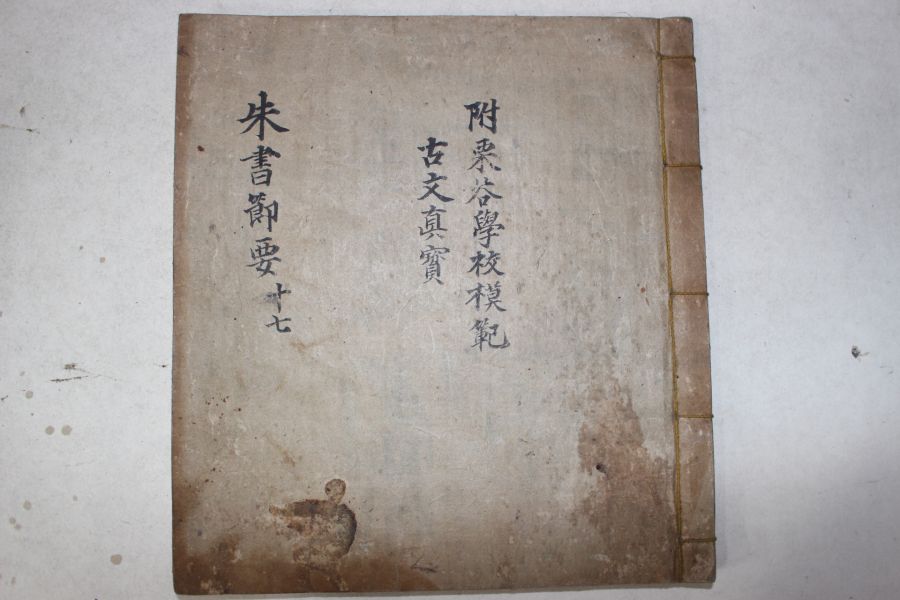 附栗谷學校模範
古文真寳
朱書節要 十七